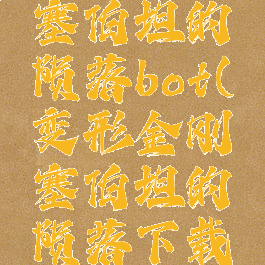 塞伯坦的
陨落bot(
变形金刚
塞伯坦的
陨落下载